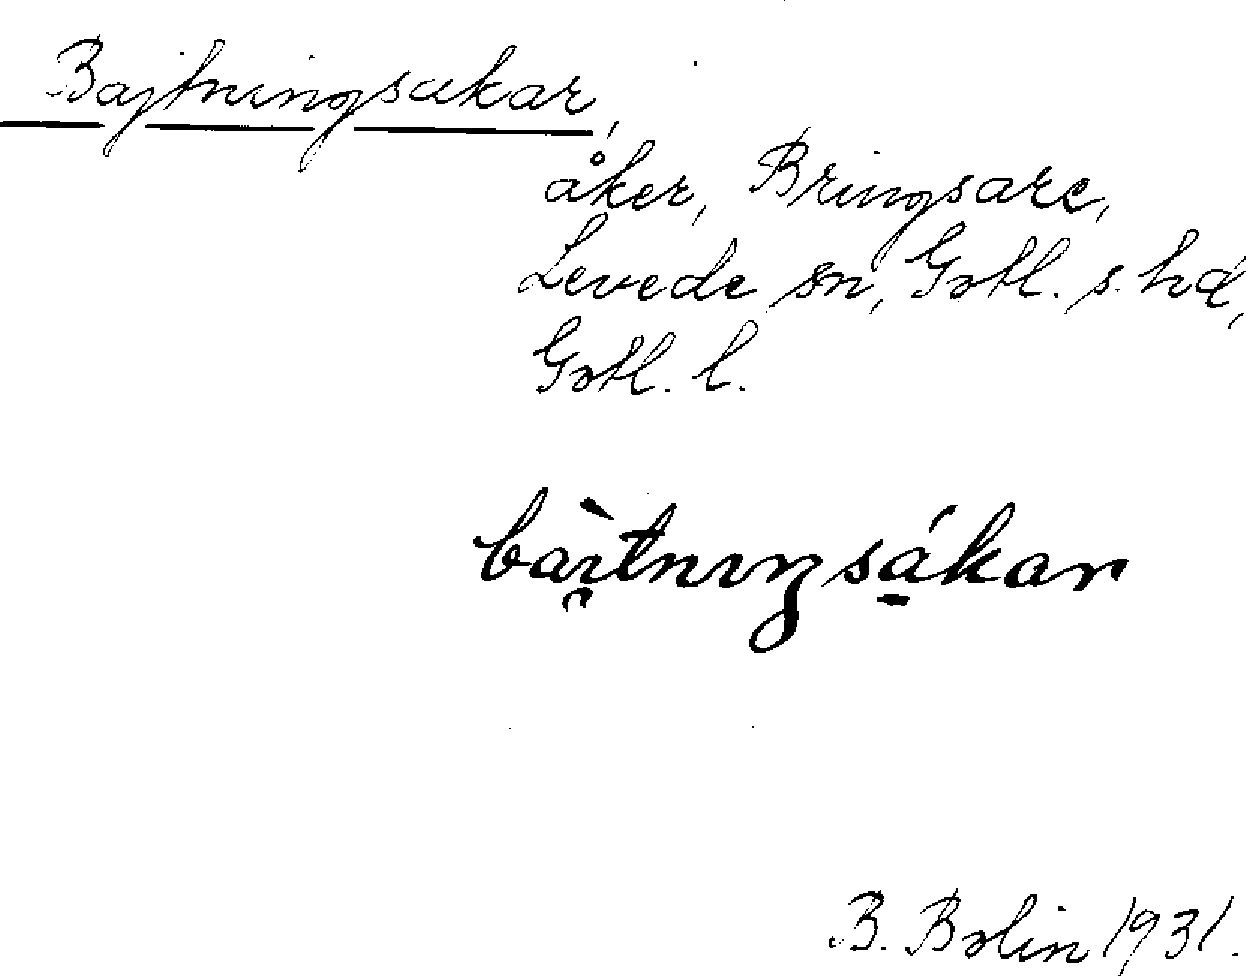 Bajtningsakar,
åker, Bringsarc,
Levede sn, Gotl. s. hd,
Gotl. l.
bài̯tnıŋsákar
B. Bolin 1931.